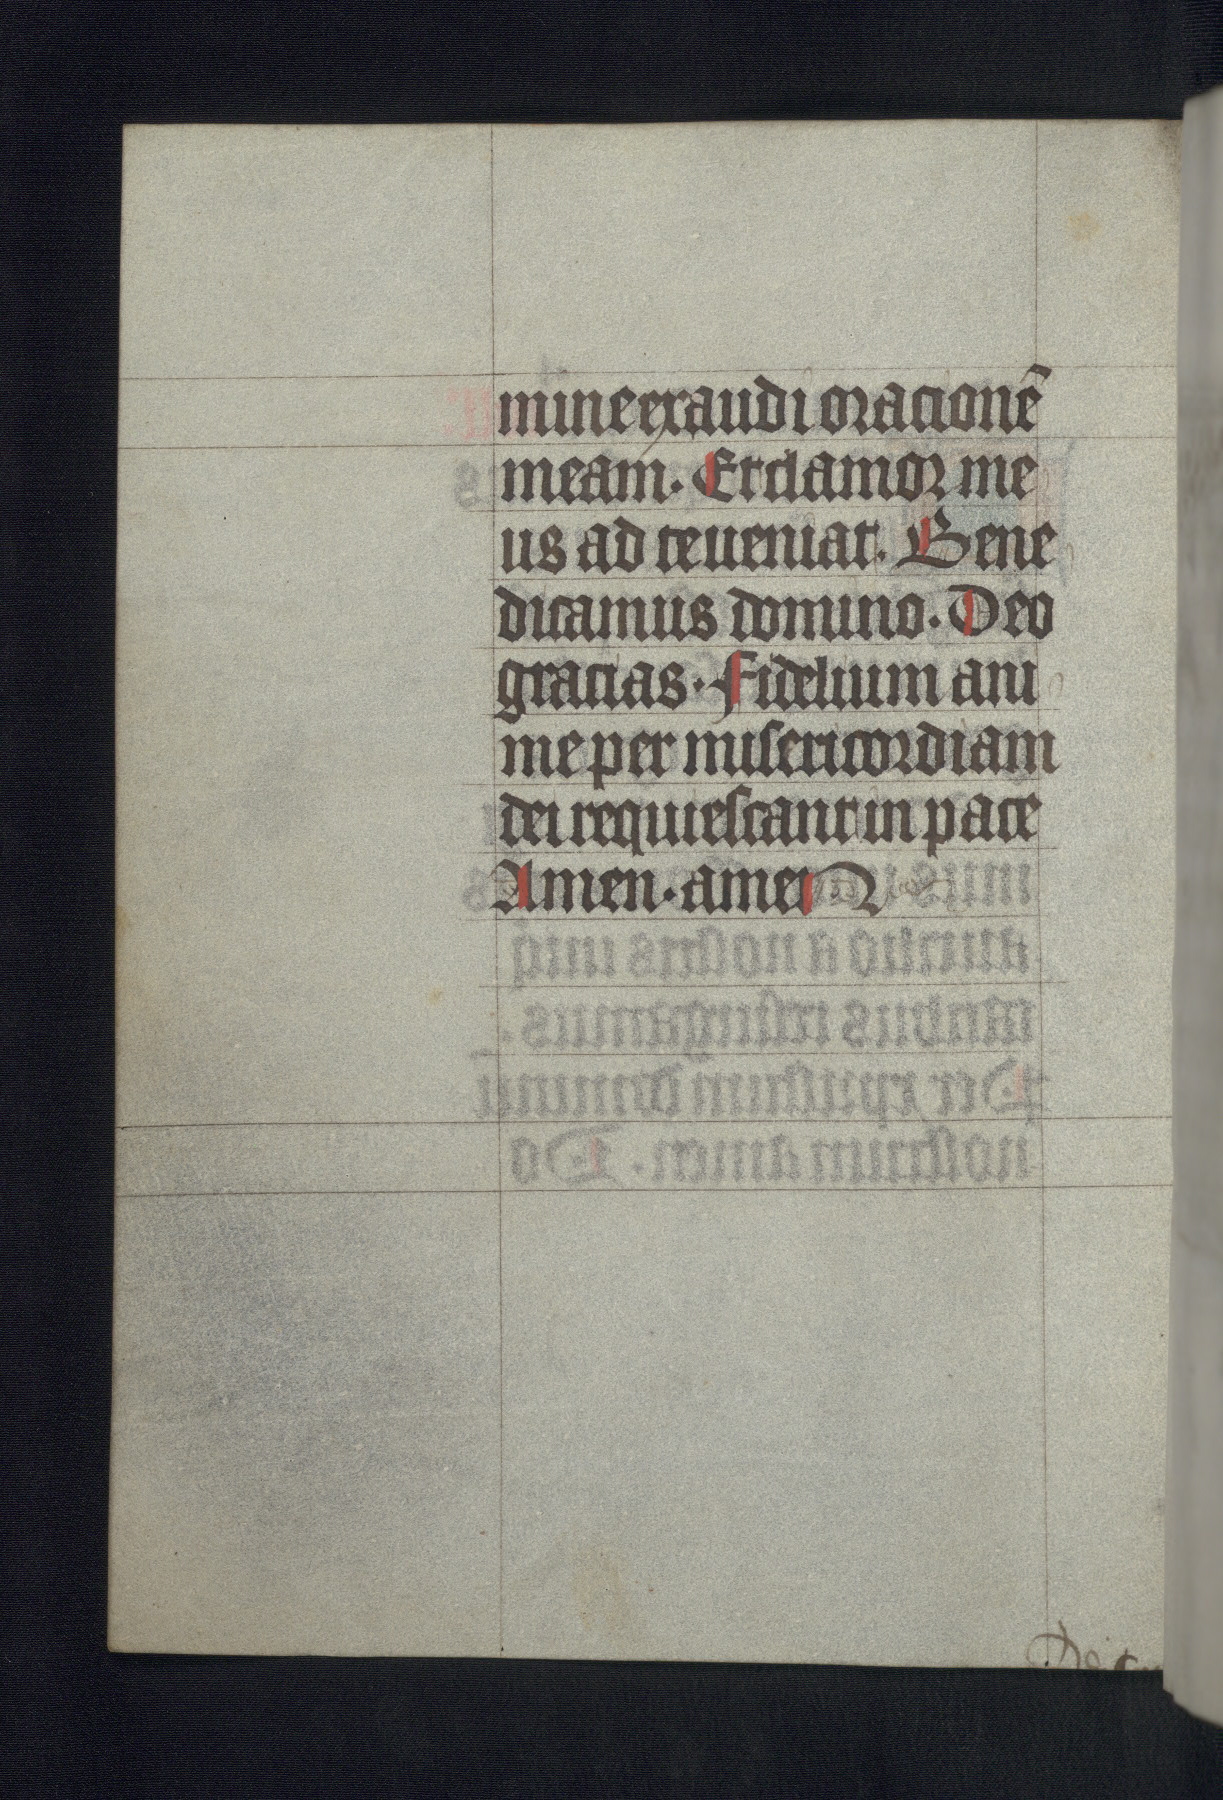 mine exaudi oracionē
meam. Et clamor me
us ad te ueniat. Bene
dicamus domino. Deo
gracias. Fidelium ani
me per misericordiam
dei requiescant in pace
Amen. amen